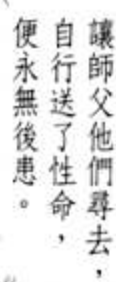 讓師父他們尋去，
自行送了性命，
便永無後患。